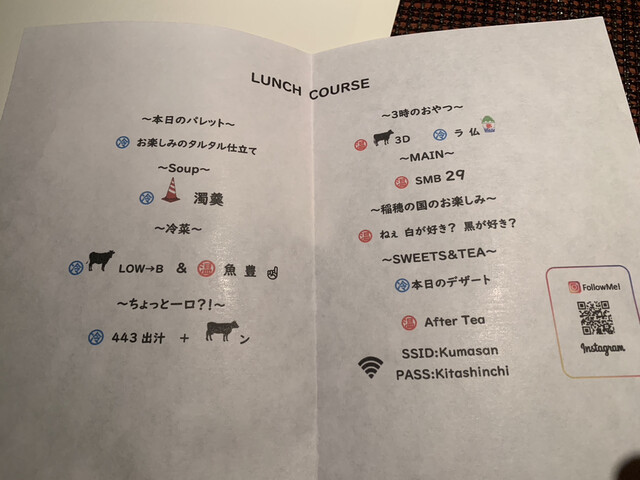 LUNCH COURSE
～本日のパレット～
冷 お楽しみのタルタル仕立て
～Soup～
冷 濁羹
～冷菜～
冷 LOW→B & 温 魚豊
～ちょっと一口?!～
冷 443出汁 + ン
～3時のおやつ～
温 3D 冷 ラ仏
～MAIN～
温 SMB 29
～稲穂の国のお楽しみ～
温 ねぇ 白が好き? 黒が好き?
～SWEETS&TEA～
冷 本日のデザート
温 After Tea
SSID:Kumasan
PASS:Kitashinchi
FollowMe!
Instagram